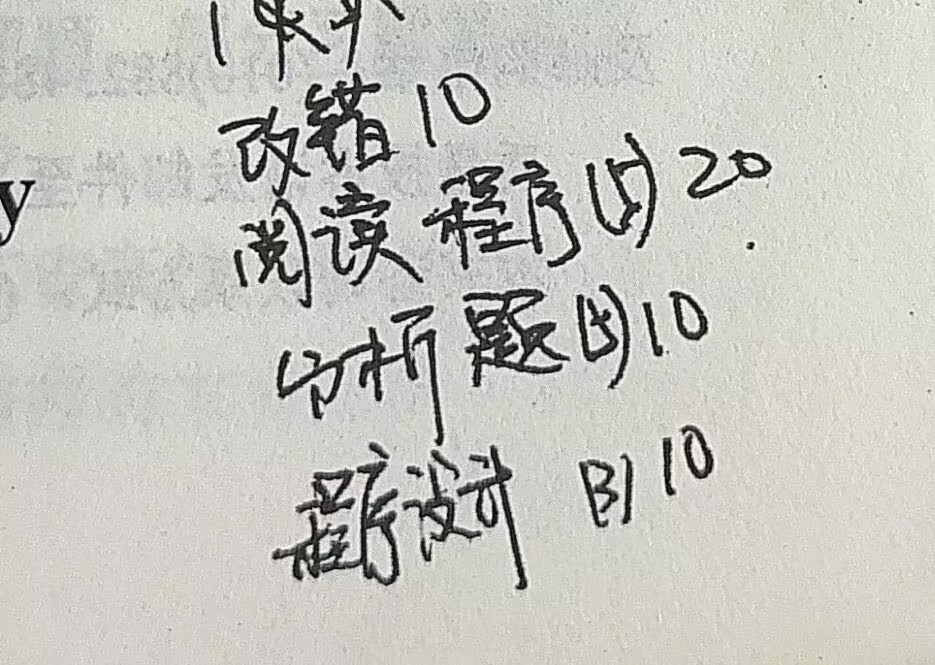 改错 10
阅读程序(5) 20
y
分析题(5) 10
程序设计 (3) 10